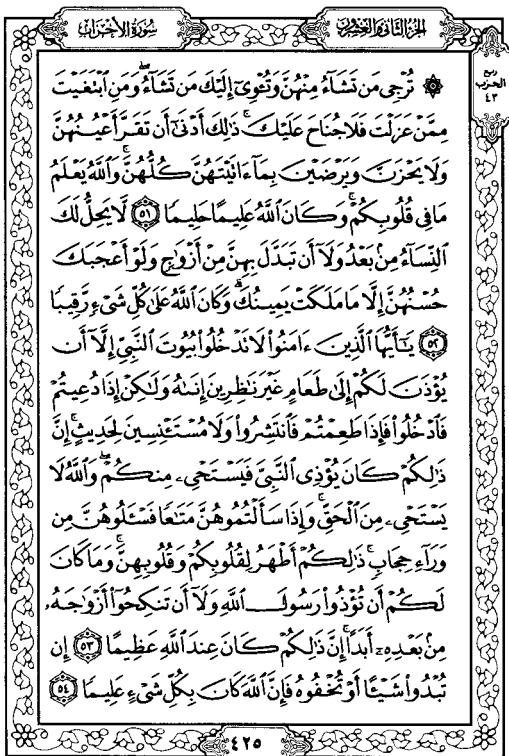 الجزء الثاني والعشرون
سورة الأحزاب
ربع
الحزب
٤٣
۞ تُرْجِي مَن تَشَآءُ مِنْهُنَّ وَتُـْٔوِيٓ إِلَيْكَ مَن تَشَآءُۖ وَمَنِ ٱبْتَغَيْتَ
مِمَّنْ عَزَلْتَ فَلَا جُنَاحَ عَلَيْكَۚ ذَٰلِكَ أَدْنَىٰٓ أَن تَقَرَّ أَعْيُنُهُنَّ
وَلَا يَحْزَنَّ وَيَرْضَيْنَ بِمَآ ءَاتَيْتَهُنَّ كُلُّهُنَّۚ وَٱللَّهُ يَعْلَمُ
مَا فِي قُلُوبِكُمْۚ وَكَانَ ٱللَّهُ عَلِيمًا حَلِيمًا ٥١ لَّا يَحِلُّ لَكَ
ٱلنِّسَآءُ مِنۢ بَعْدُ وَلَآ أَن تَبَدَّلَ بِهِنَّ مِنْ أَزْوَٰجٍ وَلَوْ أَعْجَبَكَ
حُسْنُهُنَّ إِلَّا مَا مَلَكَتْ يَمِينُكَۗ وَكَانَ ٱللَّهُ عَلَىٰ كُلِّ شَيْءٍ رَّقِيبًا
٥٢ يَٰٓأَيُّهَا ٱلَّذِينَ ءَامَنُوا۟ لَا تَدْخُلُوا۟ بُيُوتَ ٱلنَّبِيِّ إِلَّآ أَن
يُؤْذَنَ لَكُمْ إِلَىٰ طَعَامٍ غَيْرَ نَٰظِرِينَ إِنَىٰهُ وَلَٰكِنْ إِذَا دُعِيتُمْ
فَٱدْخُلُوا۟ فَإِذَا طَعِمْتُمْ فَٱنتَشِرُوا۟ وَلَا مُسْتَـْٔنِسِينَ لِحَدِيثٍۚ إِنَّ
ذَٰلِكُمْ كَانَ يُؤْذِي ٱلنَّبِيَّ فَيَسْتَحْيِۦ مِنكُمْۖ وَٱللَّهُ لَا
يَسْتَحْيِۦ مِنَ ٱلْحَقِّۚ وَإِذَا سَأَلْتُمُوهُنَّ مَتَٰعًا فَسْـَٔلُوهُنَّ مِن
وَرَآءِ حِجَابٍۚ ذَٰلِكُمْ أَطْهَرُ لِقُلُوبِكُمْ وَقُلُوبِهِنَّۚ وَمَا كَانَ
لَكُمْ أَن تُؤْذُوا۟ رَسُولَ ٱللَّهِ وَلَآ أَن تَنكِحُوٓا۟ أَزْوَٰجَهُۥ
مِنۢ بَعْدِهِۦٓ أَبَدًاۚ إِنَّ ذَٰلِكُمْ كَانَ عِندَ ٱللَّهِ عَظِيمًا ٥٣ إِن
تُبْدُوا۟ شَيْـًٔا أَوْ تُخْفُوهُ فَإِنَّ ٱللَّهَ كَانَ بِكُلِّ شَيْءٍ عَلِيمًا ٥٤
٤٢٥